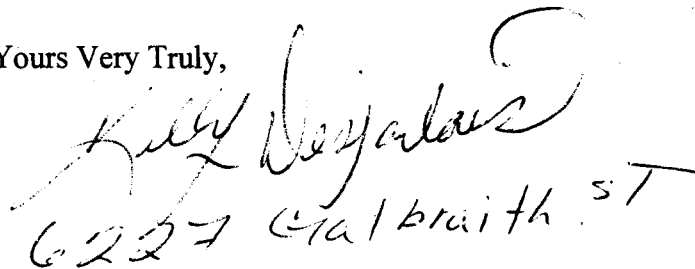 Yours Very Truly,
Kelly Desjarlais
6227 Galbraith ST